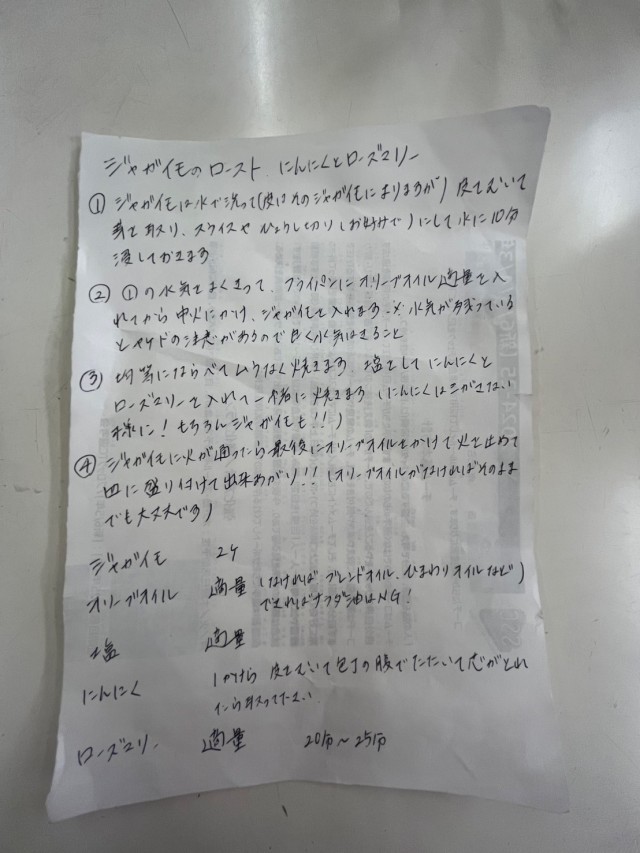 ジャガイモのロースト、にんにくとローズマリー
① ジャガイモは水で洗って(皮はそのジャガイモによりますが)皮をむいて
芽を取り、スライスや ひょうし切り(お好みで)にして水に10分
浸しておきます
② ①の水気をよくきって、フライパンにオリーブオイル適量を入
れてから中火にかけ、ジャガイモを入れます ※水気が残っている
とヤケドの注意があるので良く水気はきること
③ 均等にならべてムラなく焼きます、塩をしてにんにくと
ローズマリーを入れて一緒に焼きます(にんにくはこがさない
様に!もちろんジャガイモも!!)
④ ジャガイモに火が通ったら最後にオリーブオイルをかけて火を止めて
皿に盛り付けて出来あがり!!(オリーブオイルがなければそのまま
でも大丈夫です)
ジャガイモ 2ケ
オリーブオイル 適量(なければブレンドオイル、ひまわりオイルなど)
できればサラダ油はNG!
塩 適量
にんにく 1かけら 皮をむいて包丁の腹でたたいて芯がとれ
たら取って下さい
ローズマリー 適量 20分〜25分